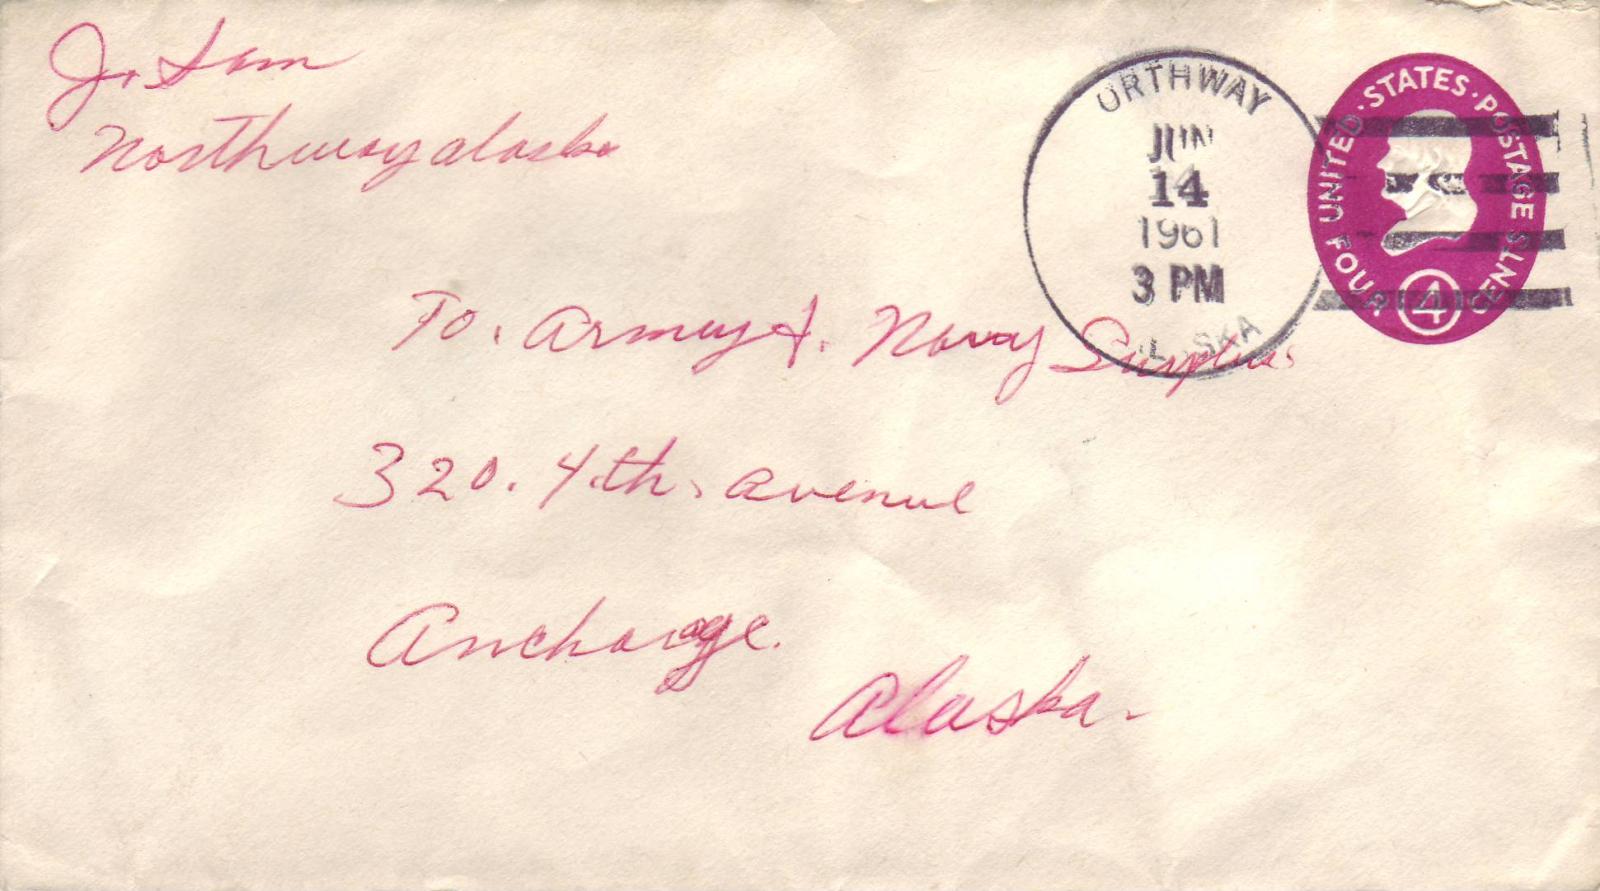 J. Sam
Northway alaska
URTHWAY
JUN
14
1961
3 PM
L SKA
UNITED · STATES · POSTAGE
FOUR 4 CENTS
To. Armey &. Navy Surplus
320. 4.th. avenue
Anchorage.
Alaska.